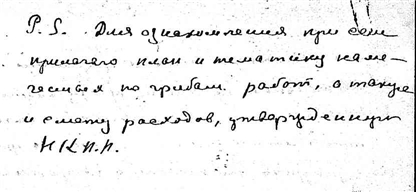 P.S. Для ознакомления при сем
прилагаю план и тематику наме-
ченных по грибам работ, а также
и смету расходов, утвержденную
НКП.П.